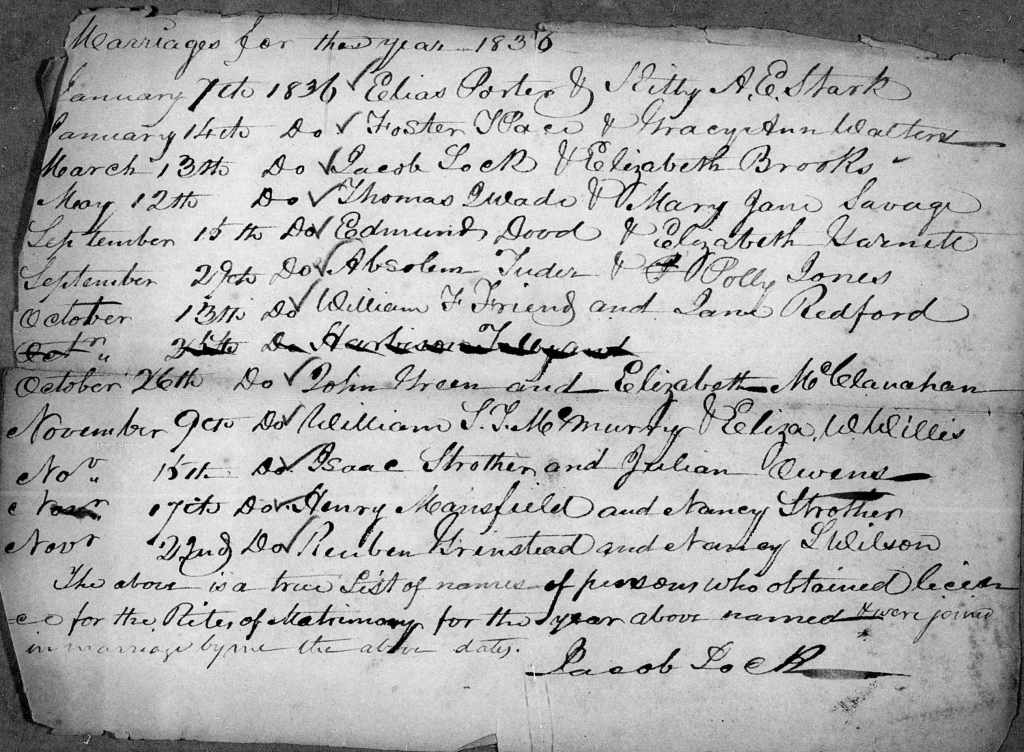 Marriages for the year 1836
January 7th 1836 ✓ Elias Porter & Kitty A. E. Stark
January 14th Do ✓ Foster T Pace & Gracy Ann Walters
March 13th Do ✓ Jacob Lock & Elizabeth Brooks
May 12th Do ✓ Thomas Wade & Mary Jane Savage
September 15th Do ✓ Edmund Dood & Elizabeth Garnett
September 29th Do ✓ Absolem Tuder & Polly Jones
October 13th Do ✓ William F Friend and Jane Redford
Octr 25th Do Harbison
October 26th Do ✓ John Green and Elizabeth McClanahan
November 9th Do ✓ William S. T. McMurry & Eliza W. Willis
Nov 15th Do ✓ Isaac Strother and Julian Owens
Novr 17th Do ✓ Henry Mansfield and Nancy Strother
Novr 22nd Do ✓ Reuben Grinstead and Nancy S Wilson
The above is a true List of names of persons who obtained licen
ce for the Rites of Matrimony for the year above named & were joined
in marriage by me the above dates.
Jacob Lock